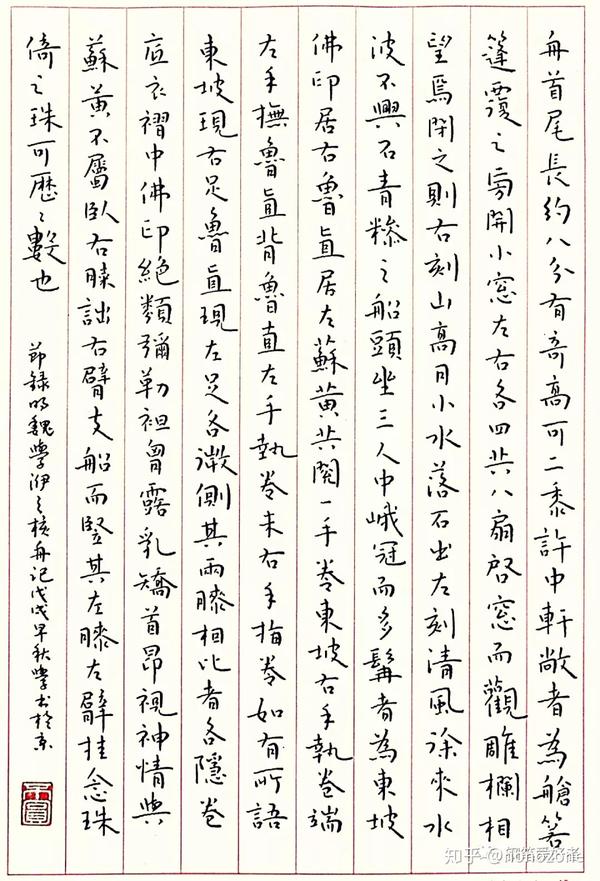 舟首尾長約八分有奇高可二黍許中軒敞者為艙箬
篷覆之旁開小窓左右各四共八扇啓窓而觀雕欄相
望焉閉之則右刻山高月小水落石出左刻清風徐來水
波不興石青糝之船頭坐三人中峨冠而多髯者為東坡
佛印居右魯直居左蘇黃共閱一手卷東坡右手執卷端
左手撫魯直背魯直左手執卷末右手指卷如有所語
東坡現右足魯直現左足各微側其兩膝相比者各隱卷
底衣褶中佛印絕類彌勒袒胷露乳矯首昂視神情與
蘇黃不屬臥右膝詘右臂支船而豎其左膝左臂挂念珠
倚之珠可歷〻數也
節錄明魏學洢之核舟記戊戌早秋學書於京
知乎